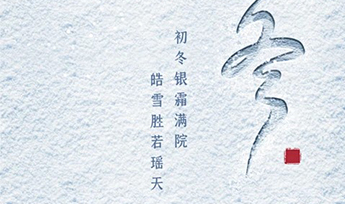 冬
初冬银霜满院
皓雪胜若瑶天